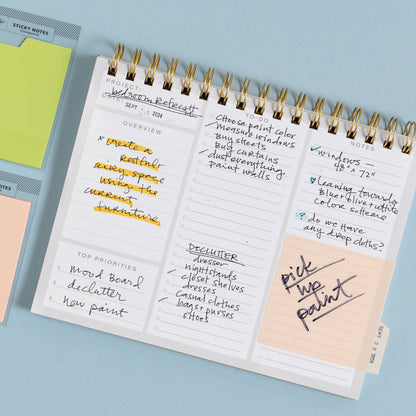 STICKY NOTES
PROJECT:
bedroom Refresh
DATE:
SEPT 1 2024
OVERVIEW
* create a
restful
airy space
using the
current
furniture
TOP PRIORITIES
mood board
declutter
new paint
TO-DO
choose paint color
measure windows
Buy sheets
Buy curtains
dust everything
paint walls
DECLUTTER
dresser
nightstands
closet shelves
dresses
casual clothes
bags + purses
shoes
NOTES
✓ windows –
48" x 72"
? leaning towards
blue + olive + white
color scheme
? do we have
any drop cloths?
pick
up
paint
SEPT 30 2024
NOTES